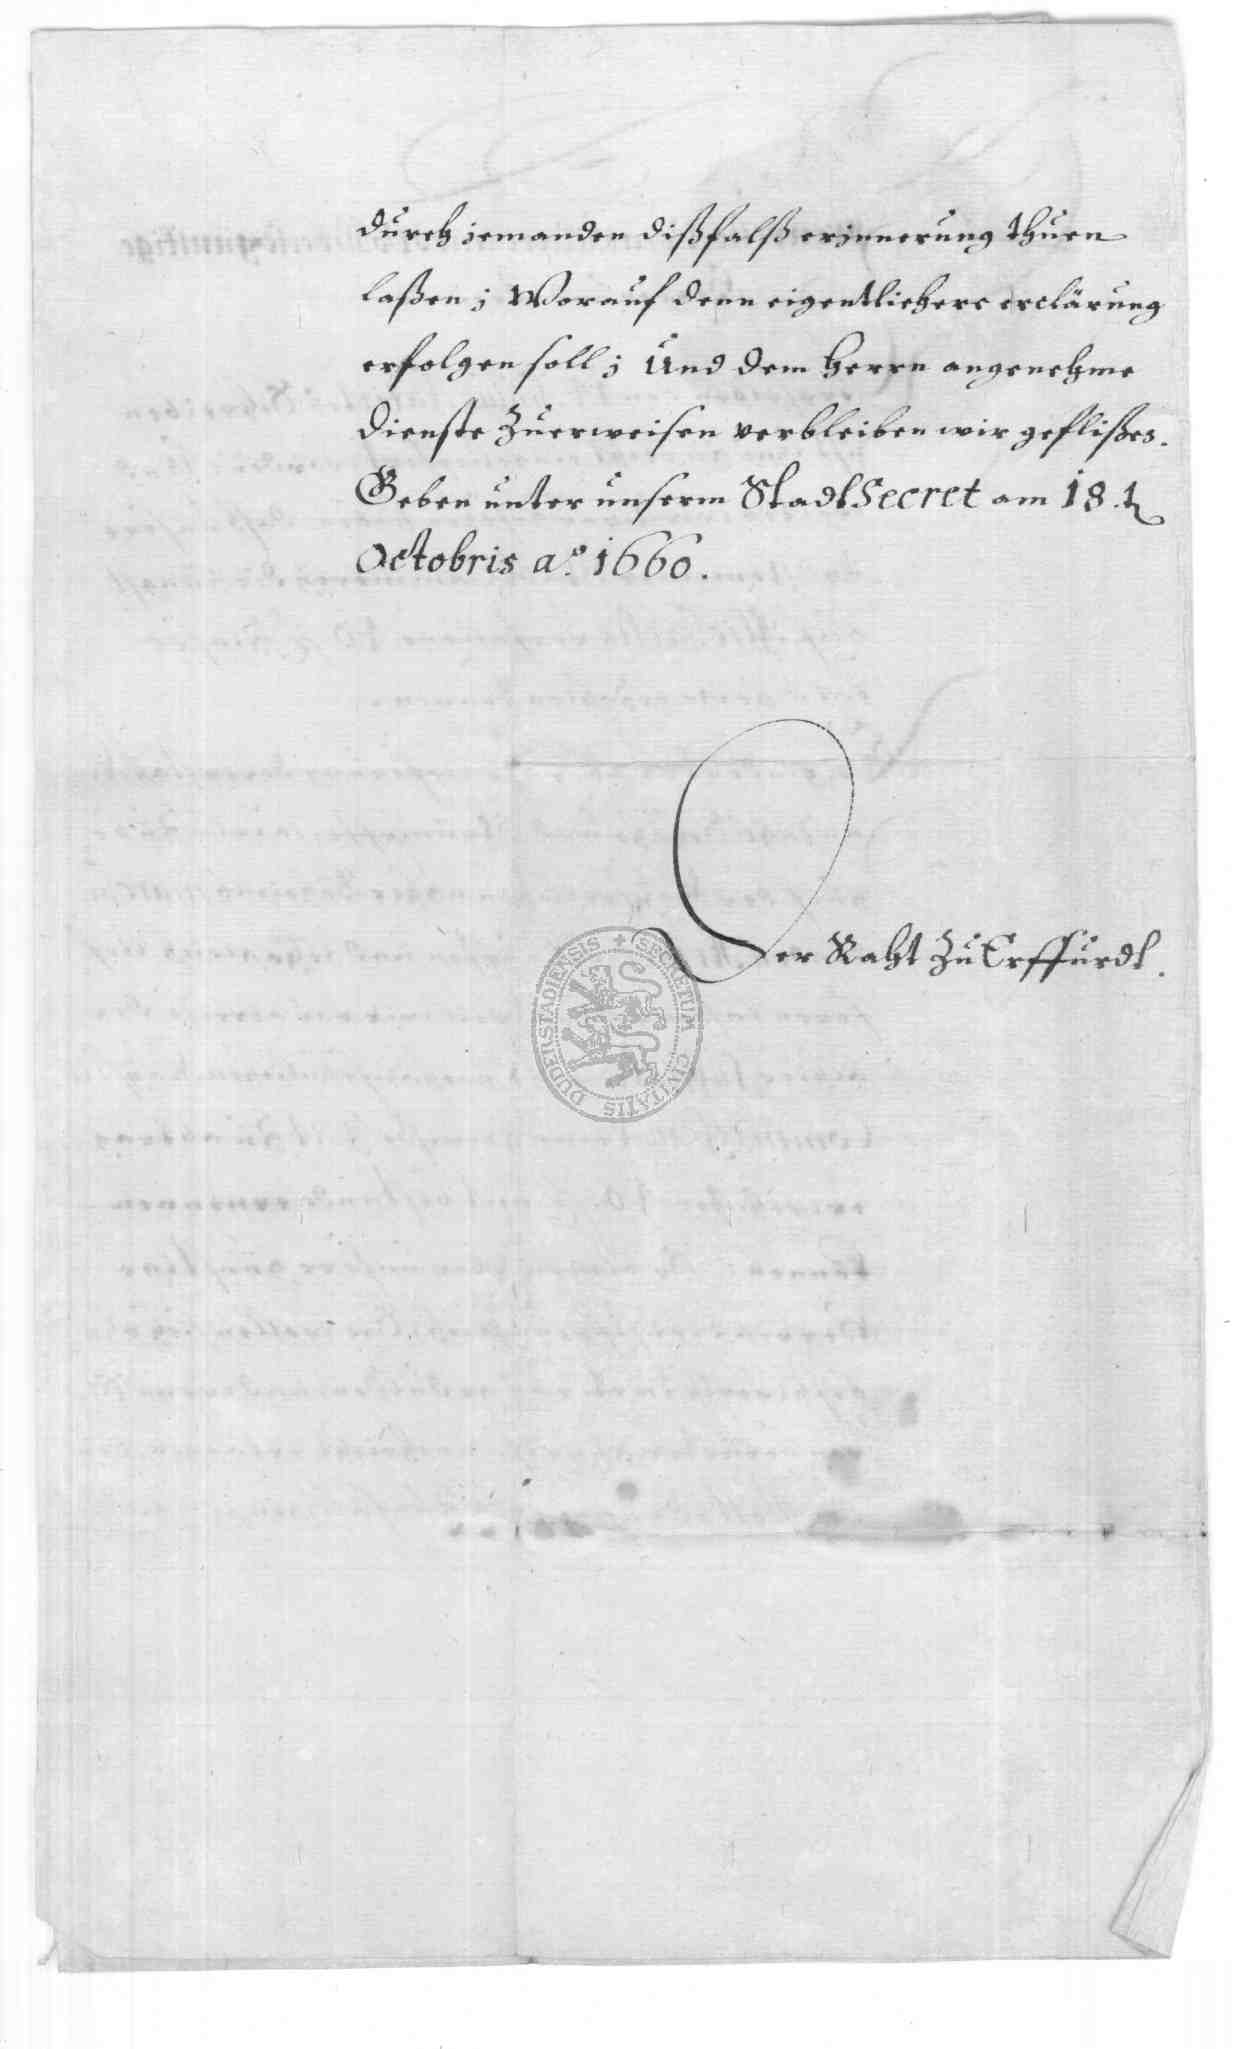 durch jemanden dißfalß erjnnerung thuen
laßen; Worauf denn eigentlichere erclärung
erfolgen soll; Und dem Herrn angenehme
dienste Zuerweisen verbleiben wir geflißen.
Geben unter unserm StadtSecret am 18. t
Octobris aº. 1660.
Der Raht Zu Erffurdt.
SECRETUM CIVITATIS DUDERSTADIENSIS +